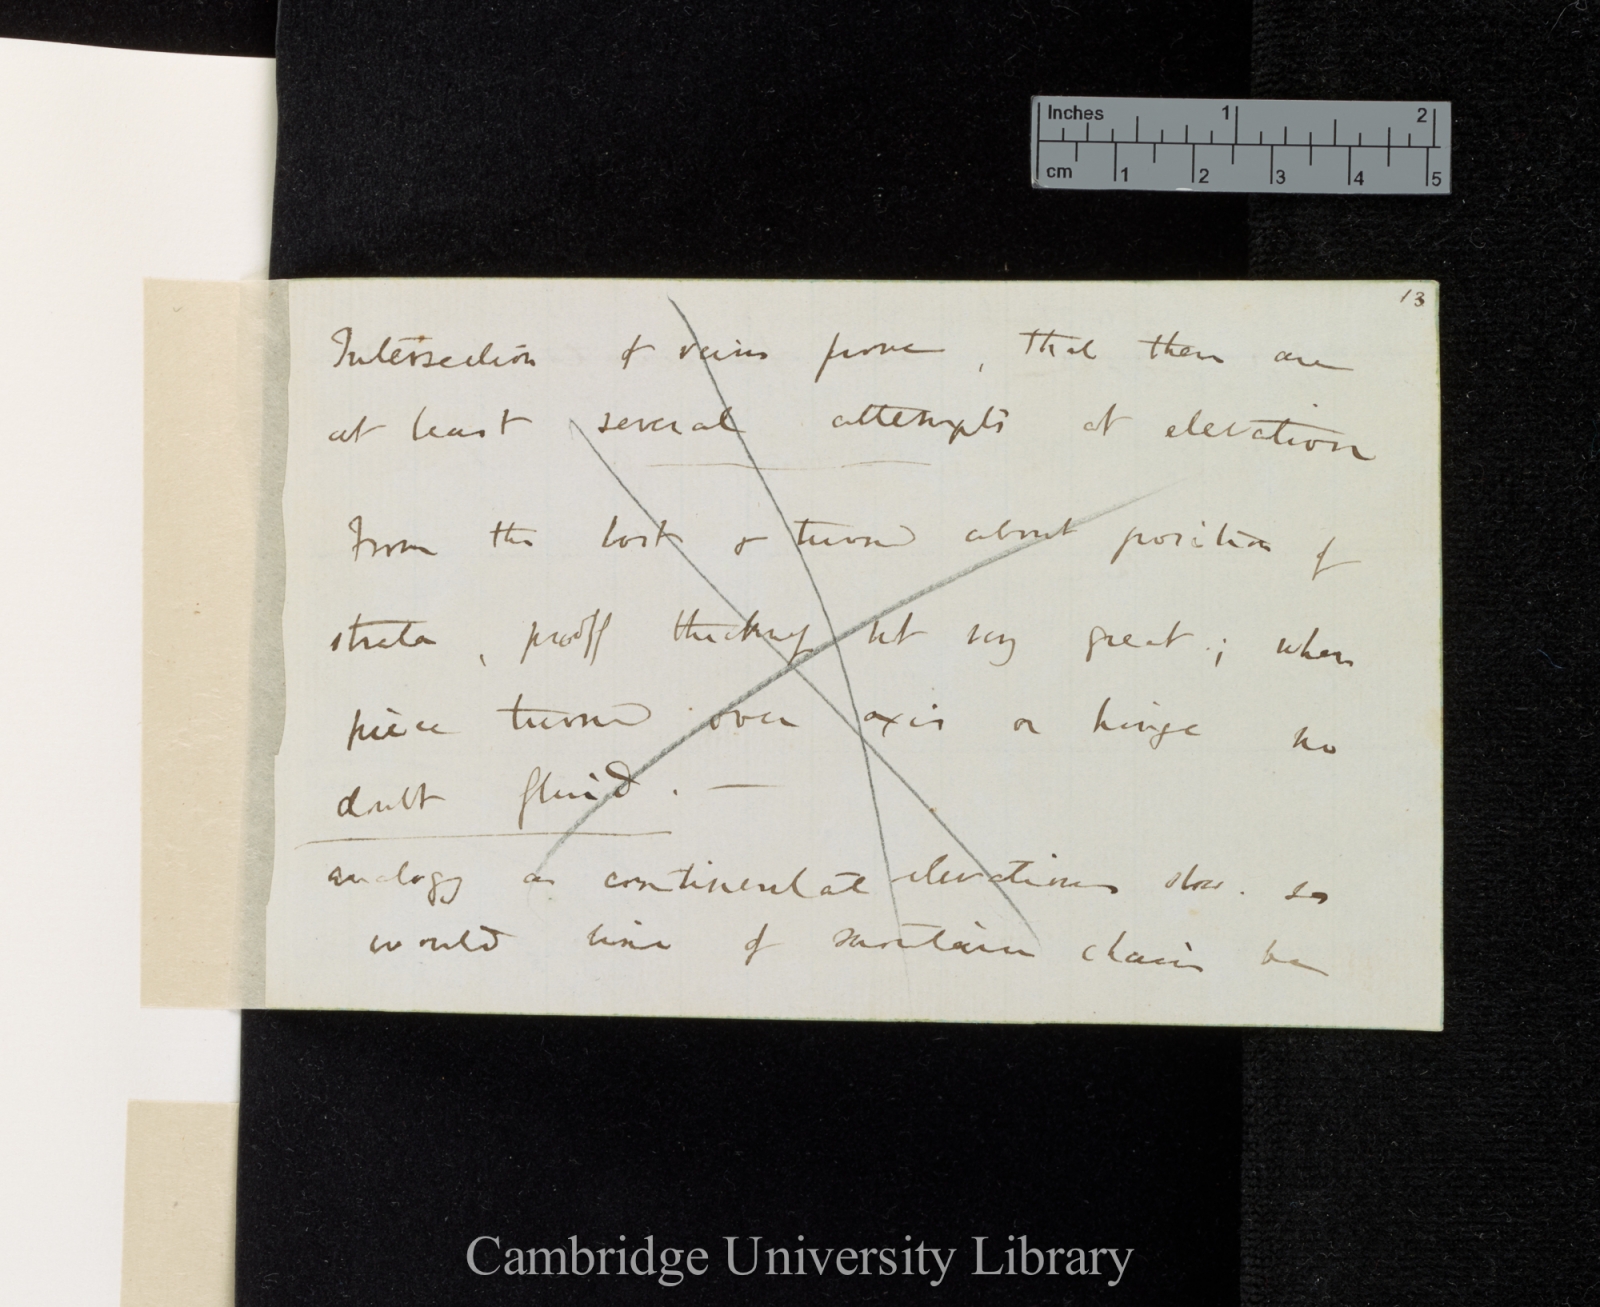 Inches 1 2
cm 1 2 3 4 5
13
Intersection of veins prove, that there are
at least several attempts at elevation
From the lost & turned about position of
strata, proof thickness not very great; when
piece turned over axis or hinge no
doubt fluid. —
analogy as continental elevations slow. so
would line of mountain chain be
Cambridge University Library